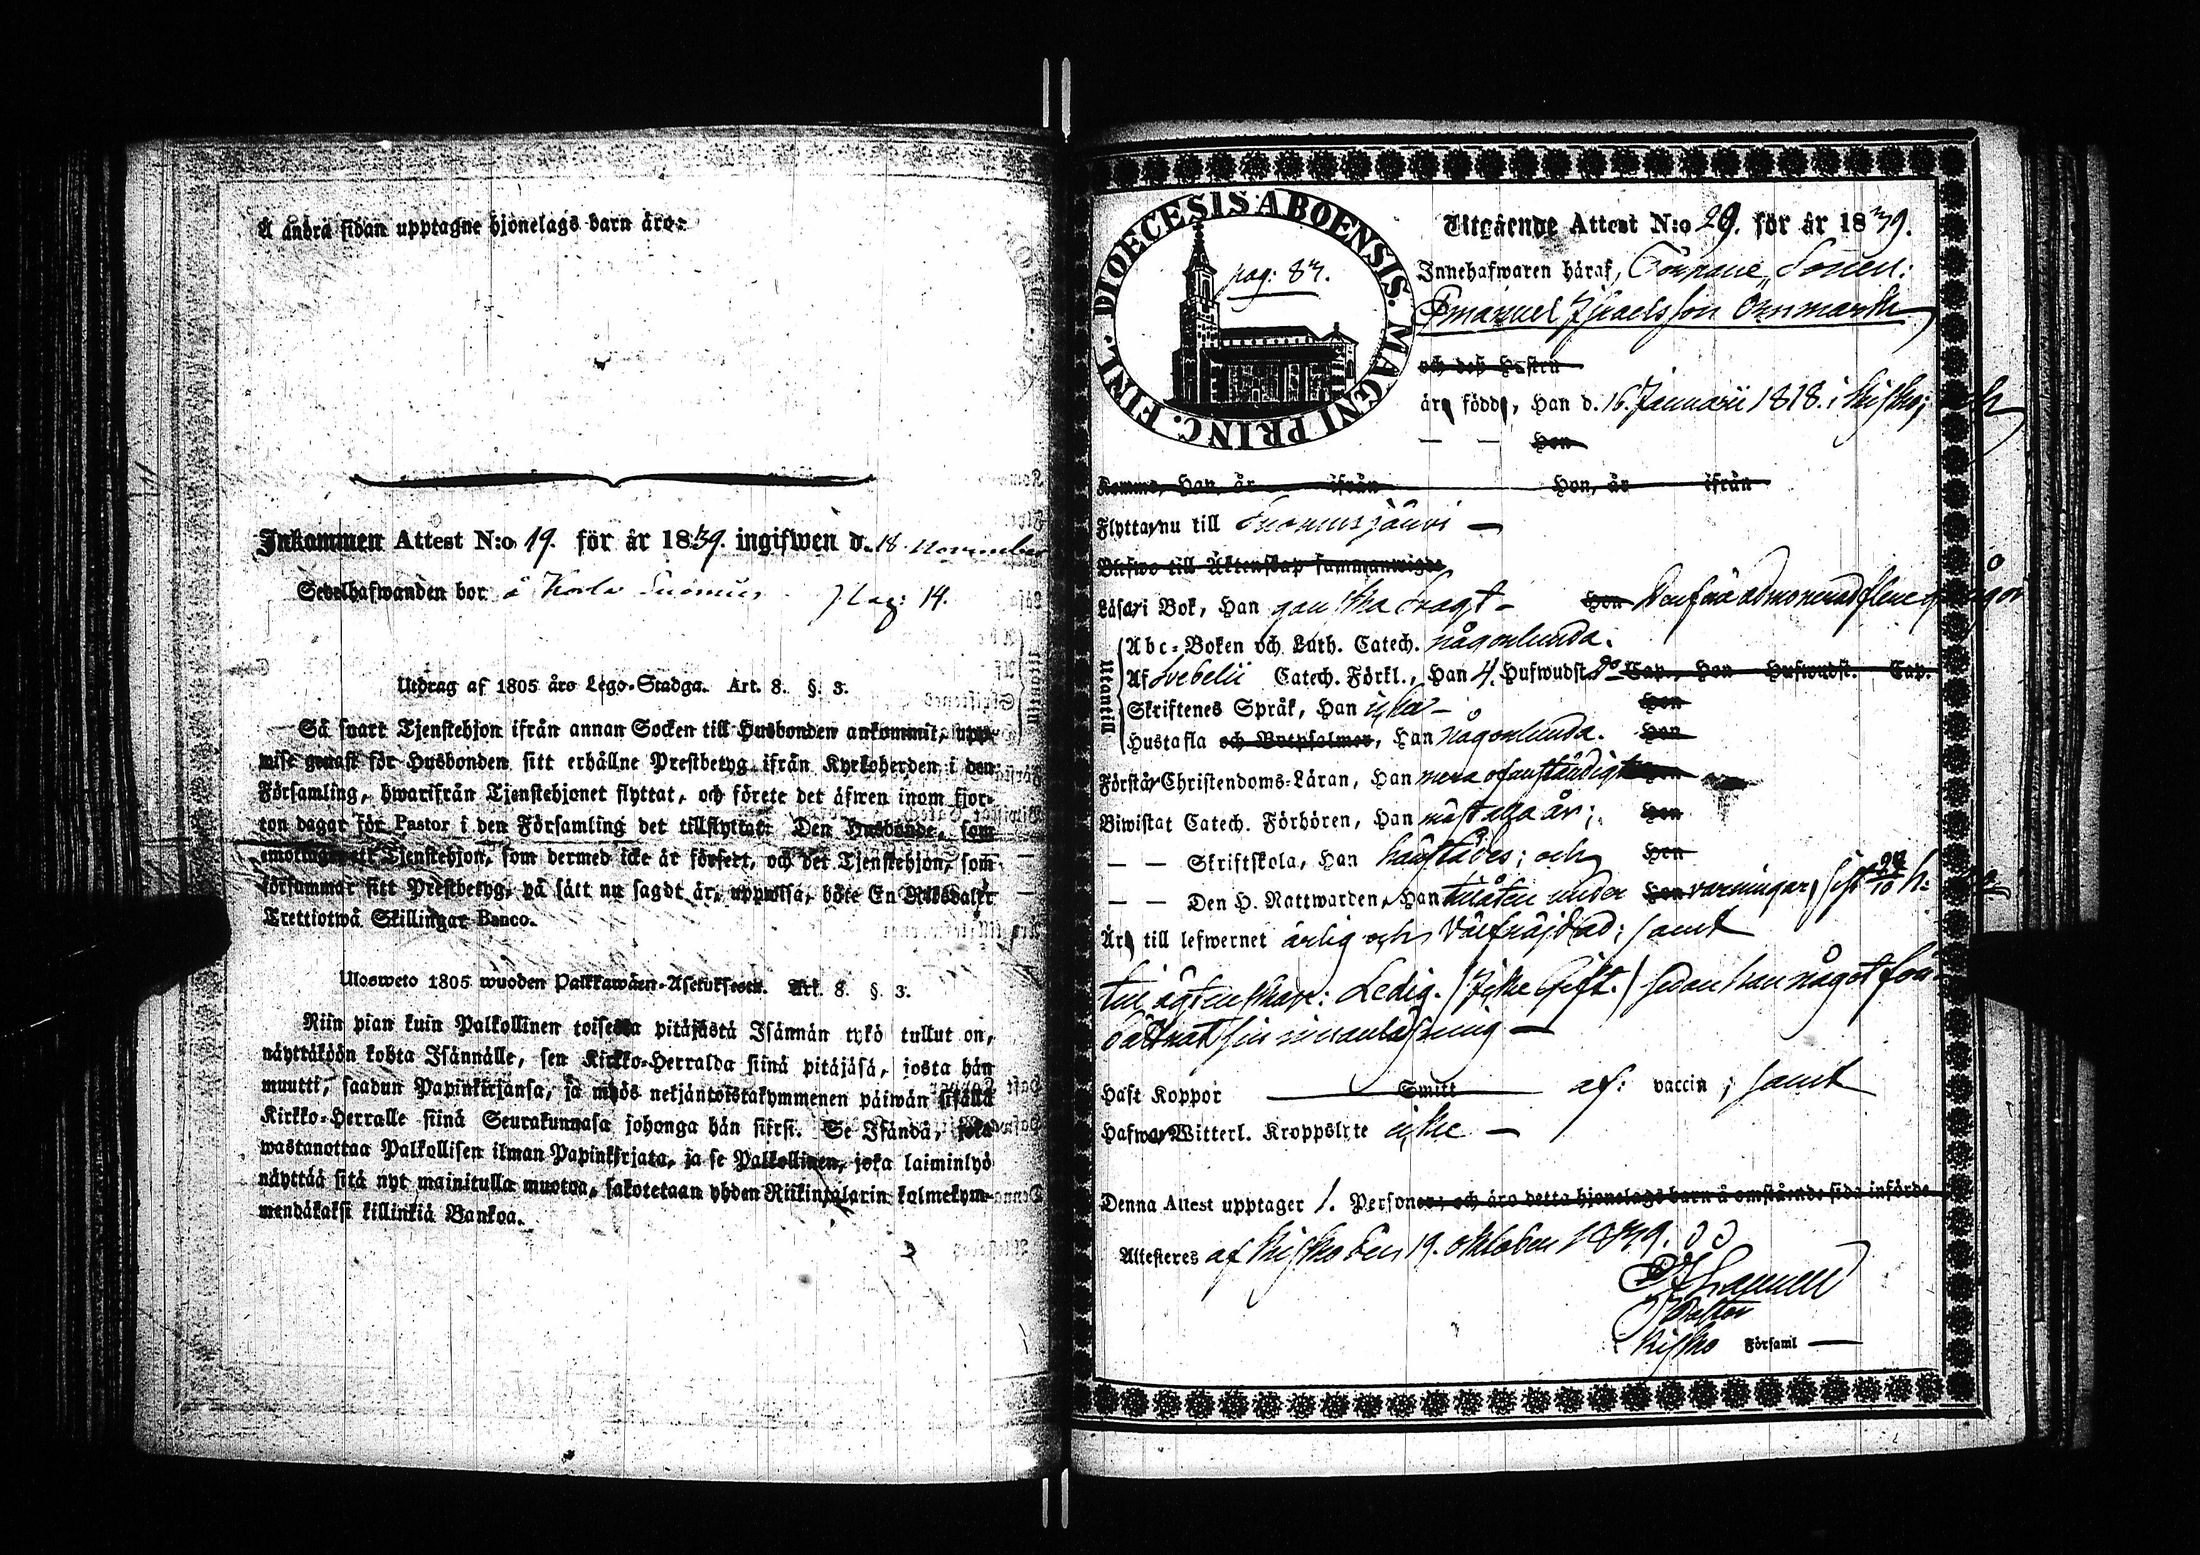 Å andra sidan upptagne hjonelags barn äro:
Inkommen Attest N:o 19. för år 1839. ingifwen d. 18 November
Sedelhafwanden bor å Pag: 14.
Utdrag af 1805 års Lego-Stadga. Art. 8. §. 3.
Så snart Tjenstehjon ifrån annan Socken till Husbonden ankommit, upp-
wise genast för Husbonden sitt erhållne Prestbetyg ifrån Kyrkoherden i den
Församling, hwarifrån Tjenstehjonet flyttat, och förete det äfwen inom fjor-
ton dagar för Pastor i den Församling det tillflyttat: Den Husbonde, som
emottager ett Tjenstehjon, som dermed icke är försett, och det Tjenstehjon, som
försummar sitt Prestbetyg, på sätt nu sagdt är, uppwisa, böte En Riksdaler
Trettiotwå Skillingar Banco.
Ulosweto 1805 wuoden Palkkawäen-Asetuksesta. Art. 8. §. 3.
Niin pian kuin Palkollinen toisesta pitäjästä Isännän tykö tullut on,
näyttäköön kohta Isännälle, sen Kirkko-Herralda siinä pitäjäsä, josta hän
muutti, saadun Papinkirjansa, ja myös neljäntoistakymmenen päiwän sisällä
Kirkko-Herralle siinä Seurakunnasa johonga hän siirsi. Se Isändä, joka
wastanottaa Palkollisen ilman Papinkirjata, ja se Palkollinen, joka laiminlyö
näyttää sitä nyt mainitulla muotoa, sakotetaan yhden Riikintalarin kolmekym-
mendäkaksi killinkiä Bankoa.
DIOECESIS ABOENSIS. MAGNI PRINC. FINL.
pag: 87.
Utgående Attest N:o 29. för år 1839.
Innehafwaren häraf, Sonen:
Emanuel Israelsson Örnmark
och deß Hustru
äro födde, Han d. 16. Januarii 1818. i Kisko;
— — Hon
Komne, Han, år ifrån Hon, år ifrån
Flytta nu till Suomusjärvi —
Blefwo till Äktenskap sammanwigde
Läsa i Bok, Han ganska swagt — Hon
Utantill
Abc-Boken och Luth. Catech. någonlunda.
Af Svebelii Catech. Förkl., Han 4. Hufwudst. Cap., Hon Hufwudst. Cap.
Skriftenes Språk, Han icke — Hon
Hustafla och Botpsalmer, Han någonlunda. Hon
Förstår Christendoms-Läran, Han mera ofullständigt Hon
Biwistat Catech. Förhören, Han alla år; Hon
— — Skriftskola, Han och Hon
— — Den H. Nattwarden, Han under Hon varningar, sist
Äro till lefwernet ärlig och välfräjdad; samt
till ägtenskap: Ledig. (Icke Gift.) sedan han något för-
bättrat sin innanläsning —
Haft Koppor Smitt af: vaccin; samt
Hafwa Witterl. Kroppslyte icke —
Denna Attest upptager 1. Personer; och äro detta hjonelags barn å omstående sida införde
Attesteras af Kisko den 19. oktober 1839.
Pastor
Kisko Församl —